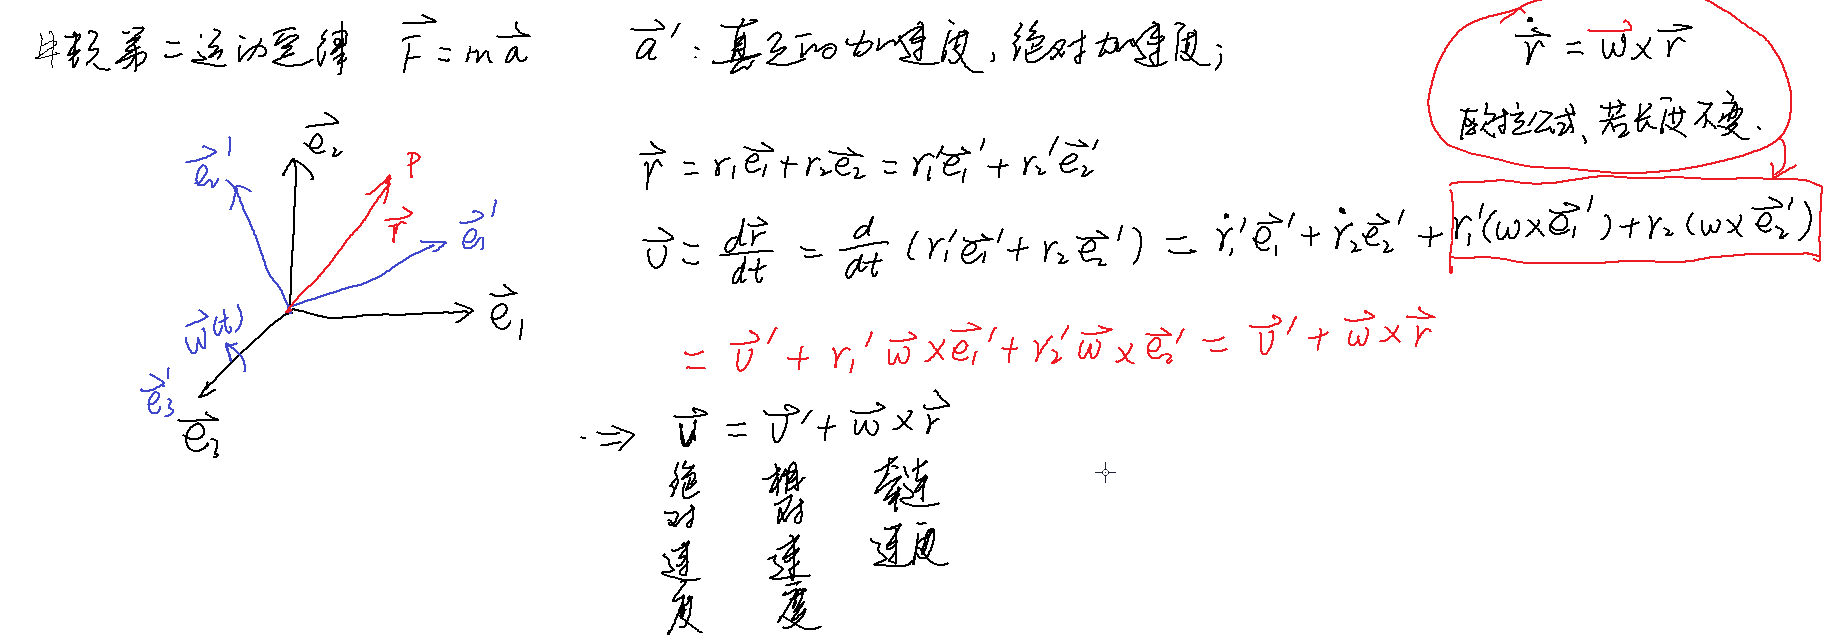 牛顿第二运动定律 $\vec{F}=m\vec{a}$ $\vec{a}'$:真正的加速度,绝对加速度;
$\dot{\vec{r}}=\vec{w}\times\vec{r}$
欧拉公式、若长度不变.
$\vec{e_2}'$ $\vec{e_2}$ P
$\vec{r}$ $\vec{e_1}'$
$\vec{e_1}$
$\vec{w}(t)$
$\vec{e_3}'$
$\vec{e_3}$
$\vec{r}=r_1\vec{e_1}+r_2\vec{e_2}=r_1'\vec{e_1}'+r_2'\vec{e_2}'$
$\vec{v}=\frac{d\vec{r}}{dt}=\frac{d}{dt}(r_1'\vec{e_1}'+r_2\vec{e_2}')=\dot{r_1}'\vec{e_1}'+\dot{r_2}\vec{e_2}'+r_1'(w\times\vec{e_1}')+r_2(w\times\vec{e_2}')$
$=\vec{v}'+r_1'\vec{w}\times\vec{e_1}'+r_2'\vec{w}\times\vec{e_2}'=\vec{v}'+\vec{w}\times\vec{r}$
$\Rightarrow \vec{v}=\vec{v}'+\vec{w}\times\vec{r}$
绝对速度
相对速度
牵连
速度